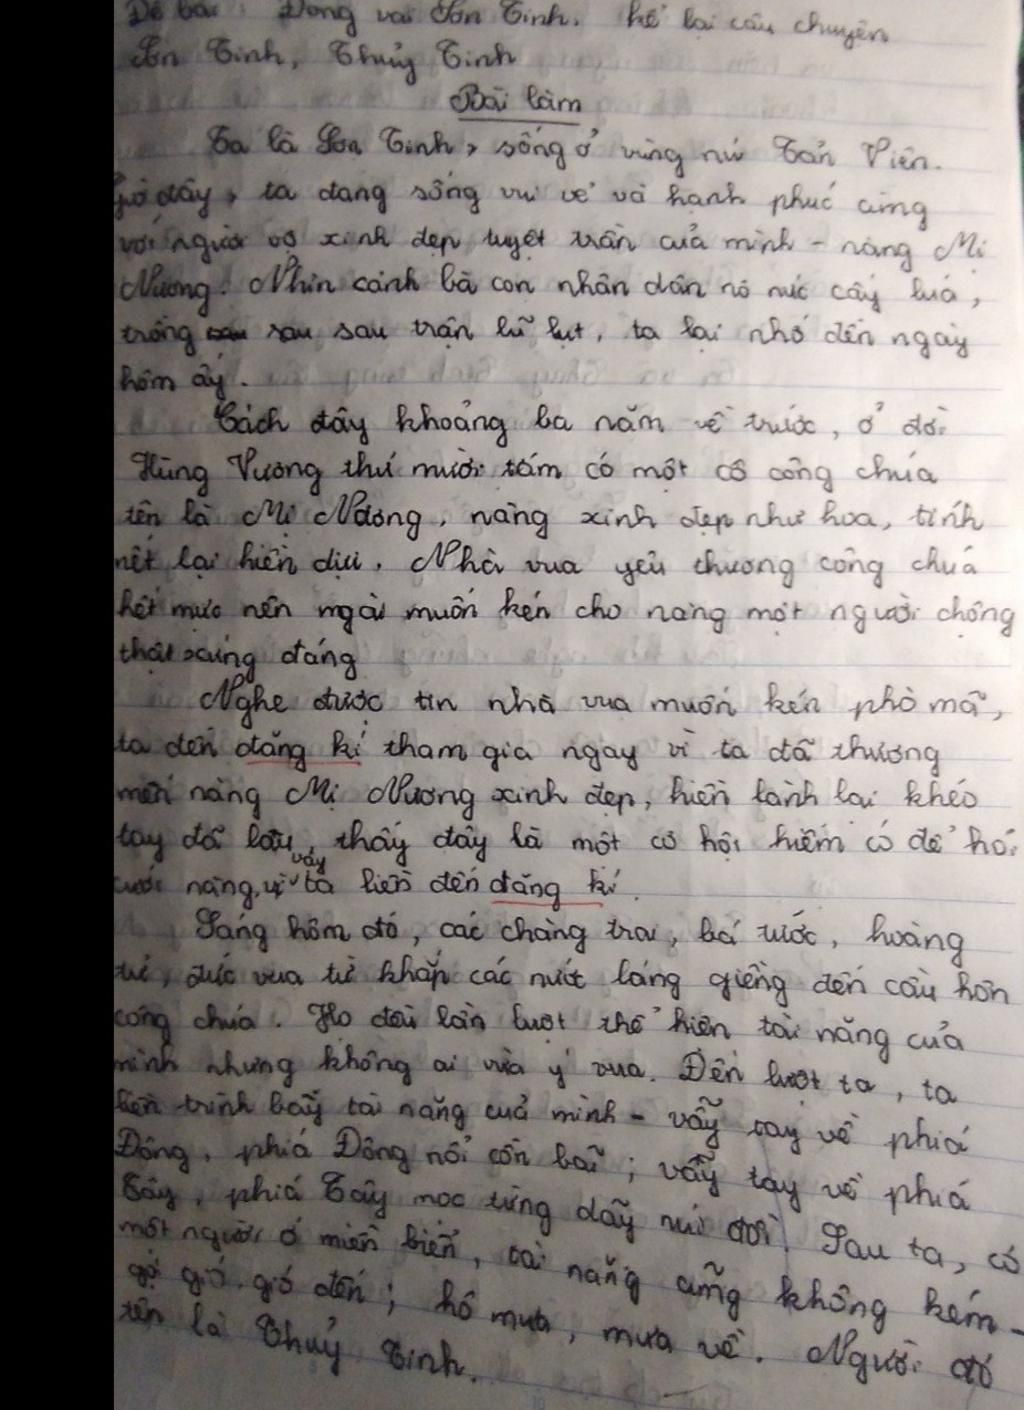 Đề bài: Đóng vai Sơn Tinh. kể lại câu chuyện
Sơn Tinh, Thủy Tinh
Bài làm
Ta là Sơn Tinh, sống ở vùng núi Tản Viên.
Giờ đây, ta đang sống vui vẻ và hạnh phúc cùng
với người vợ xinh đẹp tuyệt trần của mình - nàng Mị
Nương. Nhìn cảnh bà con nhân dân nô nức cấy lúa,
trồng sau trận lũ lụt, ta lại nhớ đến ngày
hôm ấy.
Cách đây khoảng ba năm về trước, ở đời
Hùng Vương thứ mười tám có một cô công chúa
tên là Mị Nương, nàng xinh đẹp như hoa, tính
nết lại hiền dịu. Nhà vua yêu thương công chúa
hết mực nên ngài muốn kén cho nàng một người chồng
thật xứng đáng
Nghe được tin nhà vua muốn kén phò mã,
ta đến đăng kí tham gia ngay vì ta đã thương
mến nàng Mị Nương xinh đẹp, hiền lành lại khéo
tay đã lâu, thấy đây là một cơ hội hiếm có để hỏi
cưới nàng, vì vậy ta liền đến đăng kí.
Sáng hôm đó, các chàng trai, bá tước, hoàng
tử, đức vua từ khắp các nước láng giềng đến cầu hôn
công chúa. Họ đều lần lượt thể hiện tài năng của
mình nhưng không ai vừa ý vua. Đến lượt ta, ta
liền trình bày tài năng của mình - vẫy tay về phía
Đông, phía Đông nổi cồn bãi; vẫy tay về phía
Tây, phía Tây mọc từng dãy núi đồi. Sau ta, có
một người ở miền biển, tài năng cũng không kém -
gọi gió, gió đến; hô mưa, mưa về. Người đó
tên là Thuỷ Tinh.